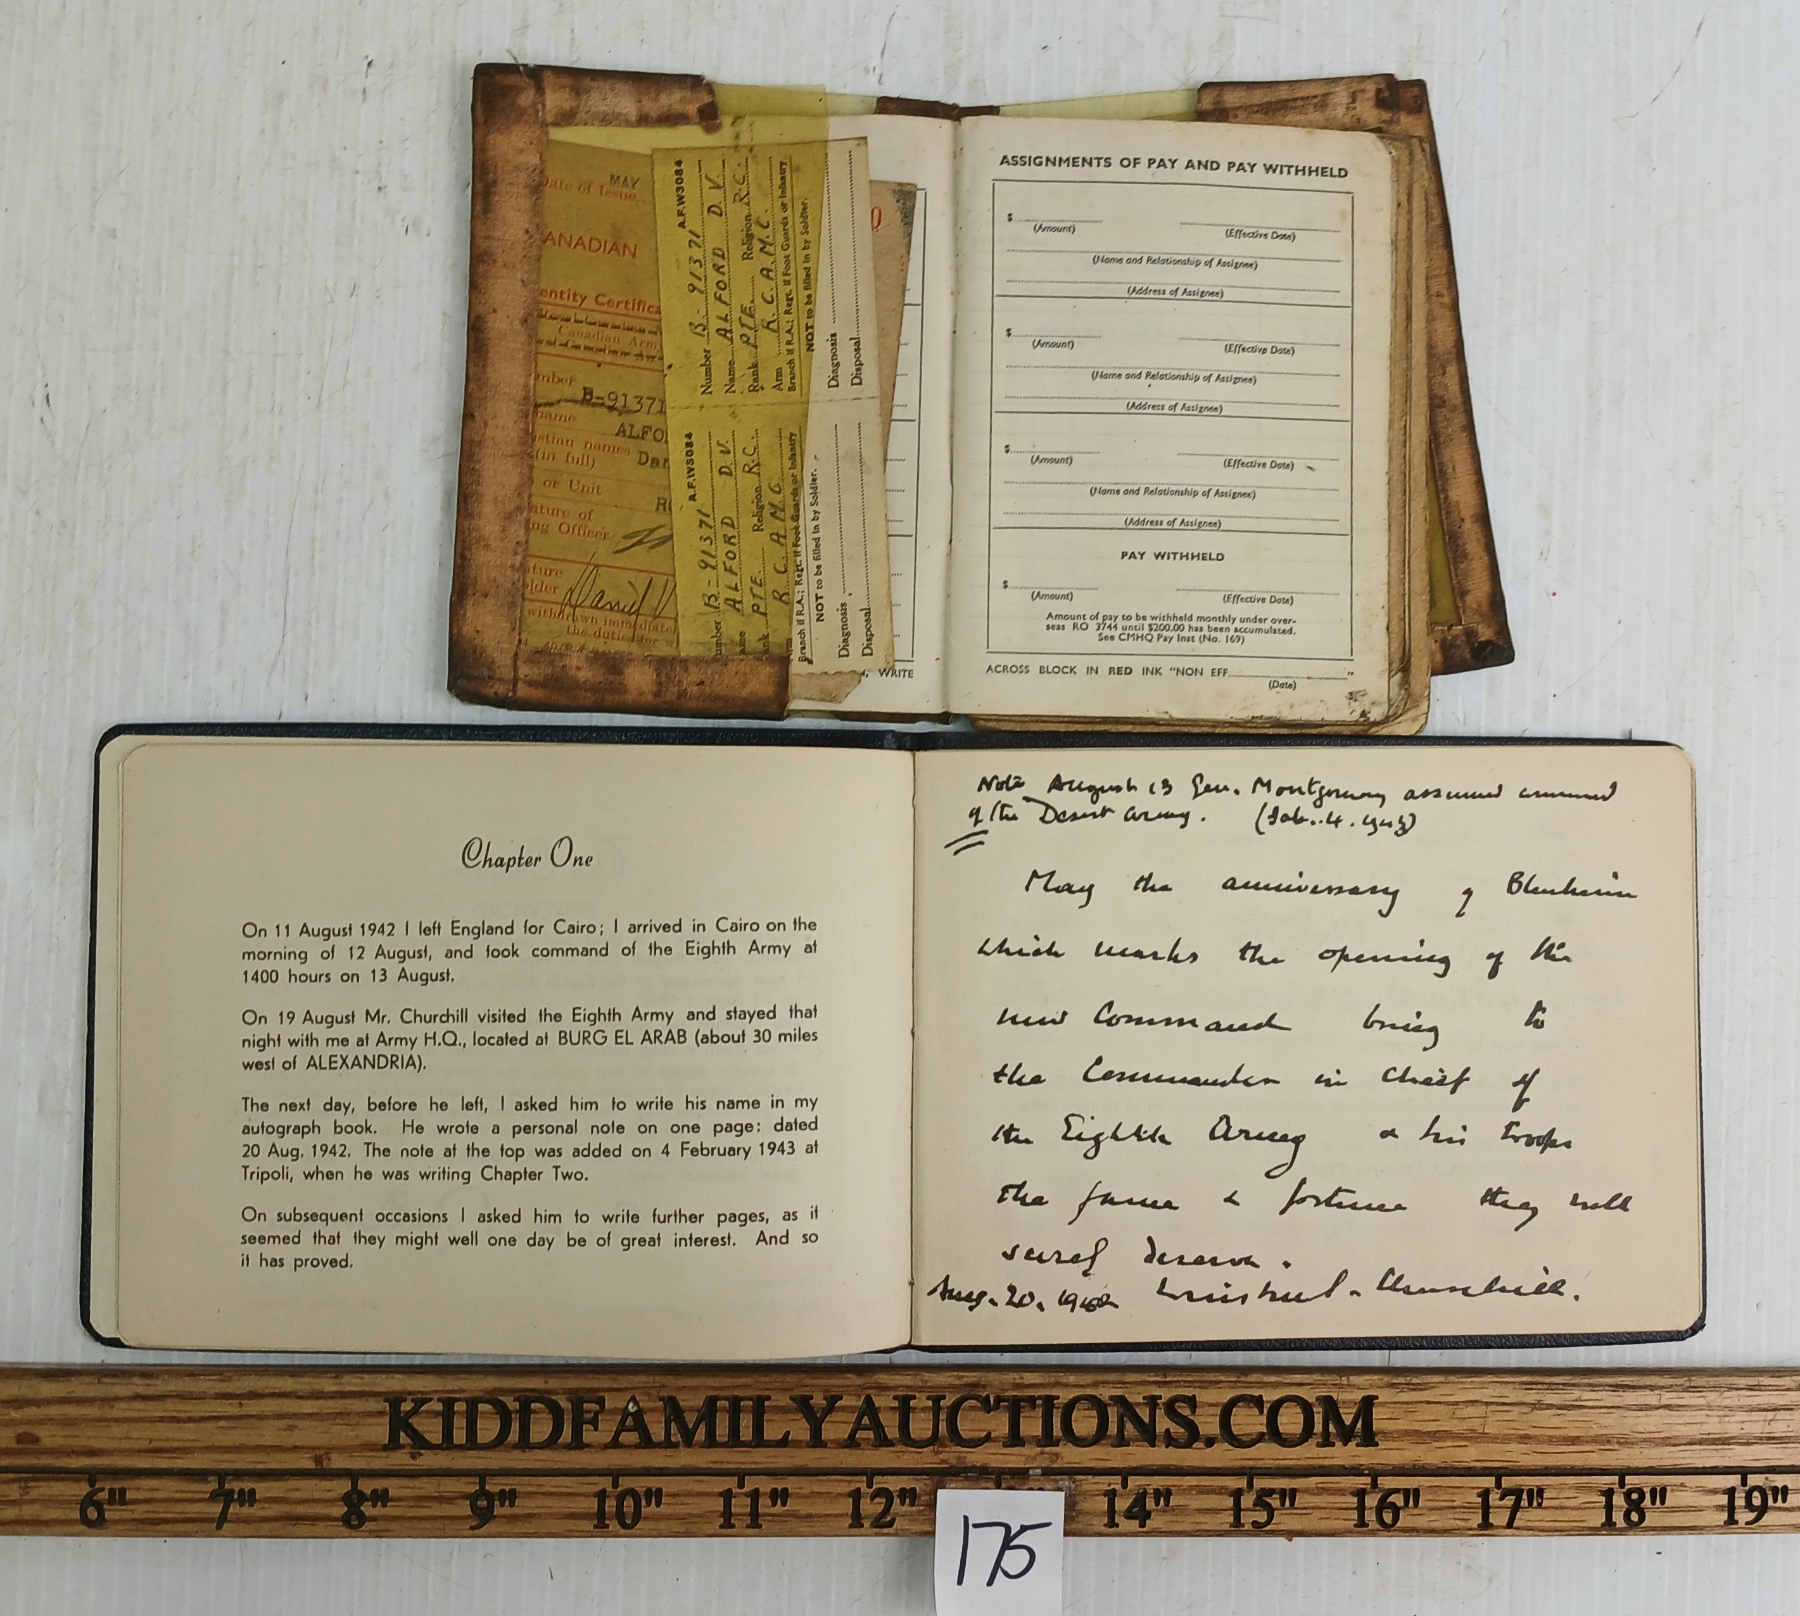 Date of Issue
MAY
ANADIAN
entity Certific
Canadian Army
mber B-91371
name ALFO
stian names Dan
(in full)
or Unit R
ature of
ng Officer
ature
lder Daniel V
withdrawn immediatel
the duties for w
A.F.W3084
Number B-91371
Name ALFORD D.V.
Rank PTE. Religion R.C.
Arm R.C.A.M.C.
Branch if R.A.; Regt. if Foot Guards or Infantry
NOT to be filled in by Soldier.
Diagnosis
Disposal
A.F.W3084
umber B-91371
ame ALFORD D.V.
ank PTE. Religion R.C.
Arm R.C.A.M.C.
Branch if R.A.; Regt. if Foot Guards or Infantry
NOT to be filled in by Soldier.
Diagnosis
Disposal
WRITE
ASSIGNMENTS OF PAY AND PAY WITHHELD
$
(Amount) (Effective Date)
(Name and Relationship of Assignee)
(Address of Assignee)
$
(Amount) (Effective Date)
(Name and Relationship of Assignee)
(Address of Assignee)
$
(Amount) (Effective Date)
(Name and Relationship of Assignee)
(Address of Assignee)
PAY WITHHELD
$
(Amount) (Effective Date)
Amount of pay to be withheld monthly under over-
seas RO 3744 until $200.00 has been accumulated.
See CMHQ Pay Inst (No. 169)
ACROSS BLOCK IN RED INK "NON EFF "
(Date)
Chapter One
On 11 August 1942 I left England for Cairo; I arrived in Cairo on the
morning of 12 August, and took command of the Eighth Army at
1400 hours on 13 August.
On 19 August Mr. Churchill visited the Eighth Army and stayed that
night with me at Army H.Q., located at BURG EL ARAB (about 30 miles
west of ALEXANDRIA).
The next day, before he left, I asked him to write his name in my
autograph book. He wrote a personal note on one page: dated
20 Aug. 1942. The note at the top was added on 4 February 1943 at
Tripoli, when he was writing Chapter Two.
On subsequent occasions I asked him to write further pages, as it
seemed that they might well one day be of great interest. And so
it has proved.
Note August 13 Gen. Montgomery assumed command
of the Desert Army. (Feb. 4. 1943)
May the anniversary of Blenheim
which marks the opening of the
new Command bring to
the Commander in Chief of
the Eighth Army & his troops
the fame & fortune they will
surely deserve.
Aug. 20. 1942 Winston S. Churchill.
KIDDFAMILYAUCTIONS.COM
6" 7" 8" 9" 10" 11" 12" 14" 15" 16" 17" 18" 19"
175